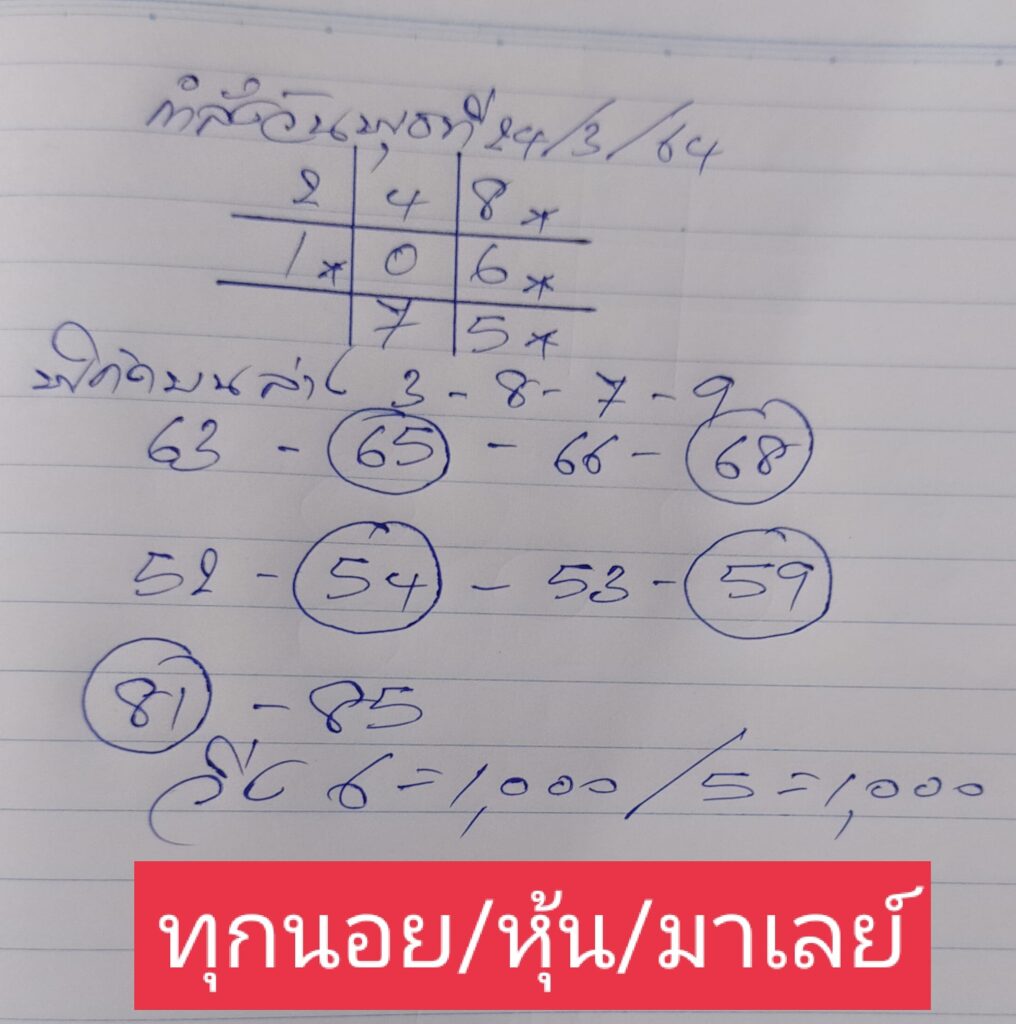 กำลังวันพุธที่ 24/3/64
2 4 8*
1* 0 6*
7 5*
พิกัดบนล่าง 3-8-7-9
63 - 65 - 66 - 68
52 - 54 - 53 - 59
81 - 85
วิ่ง 6=1,000/5=1,000
ทุกนอย/หุ้น/มาเลย์